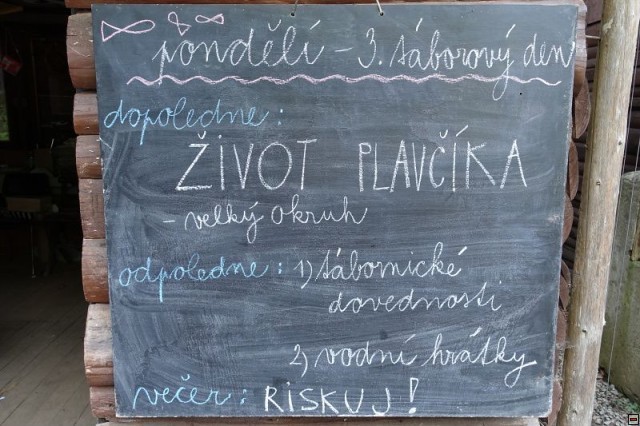 pondělí - 3. táborový den
dopoledne:
ŽIVOT PLAVČÍKA
- velký okruh
odpoledne: 1) tábornické
dovednosti
2) vodní hrátky
večer: RISKUJ!